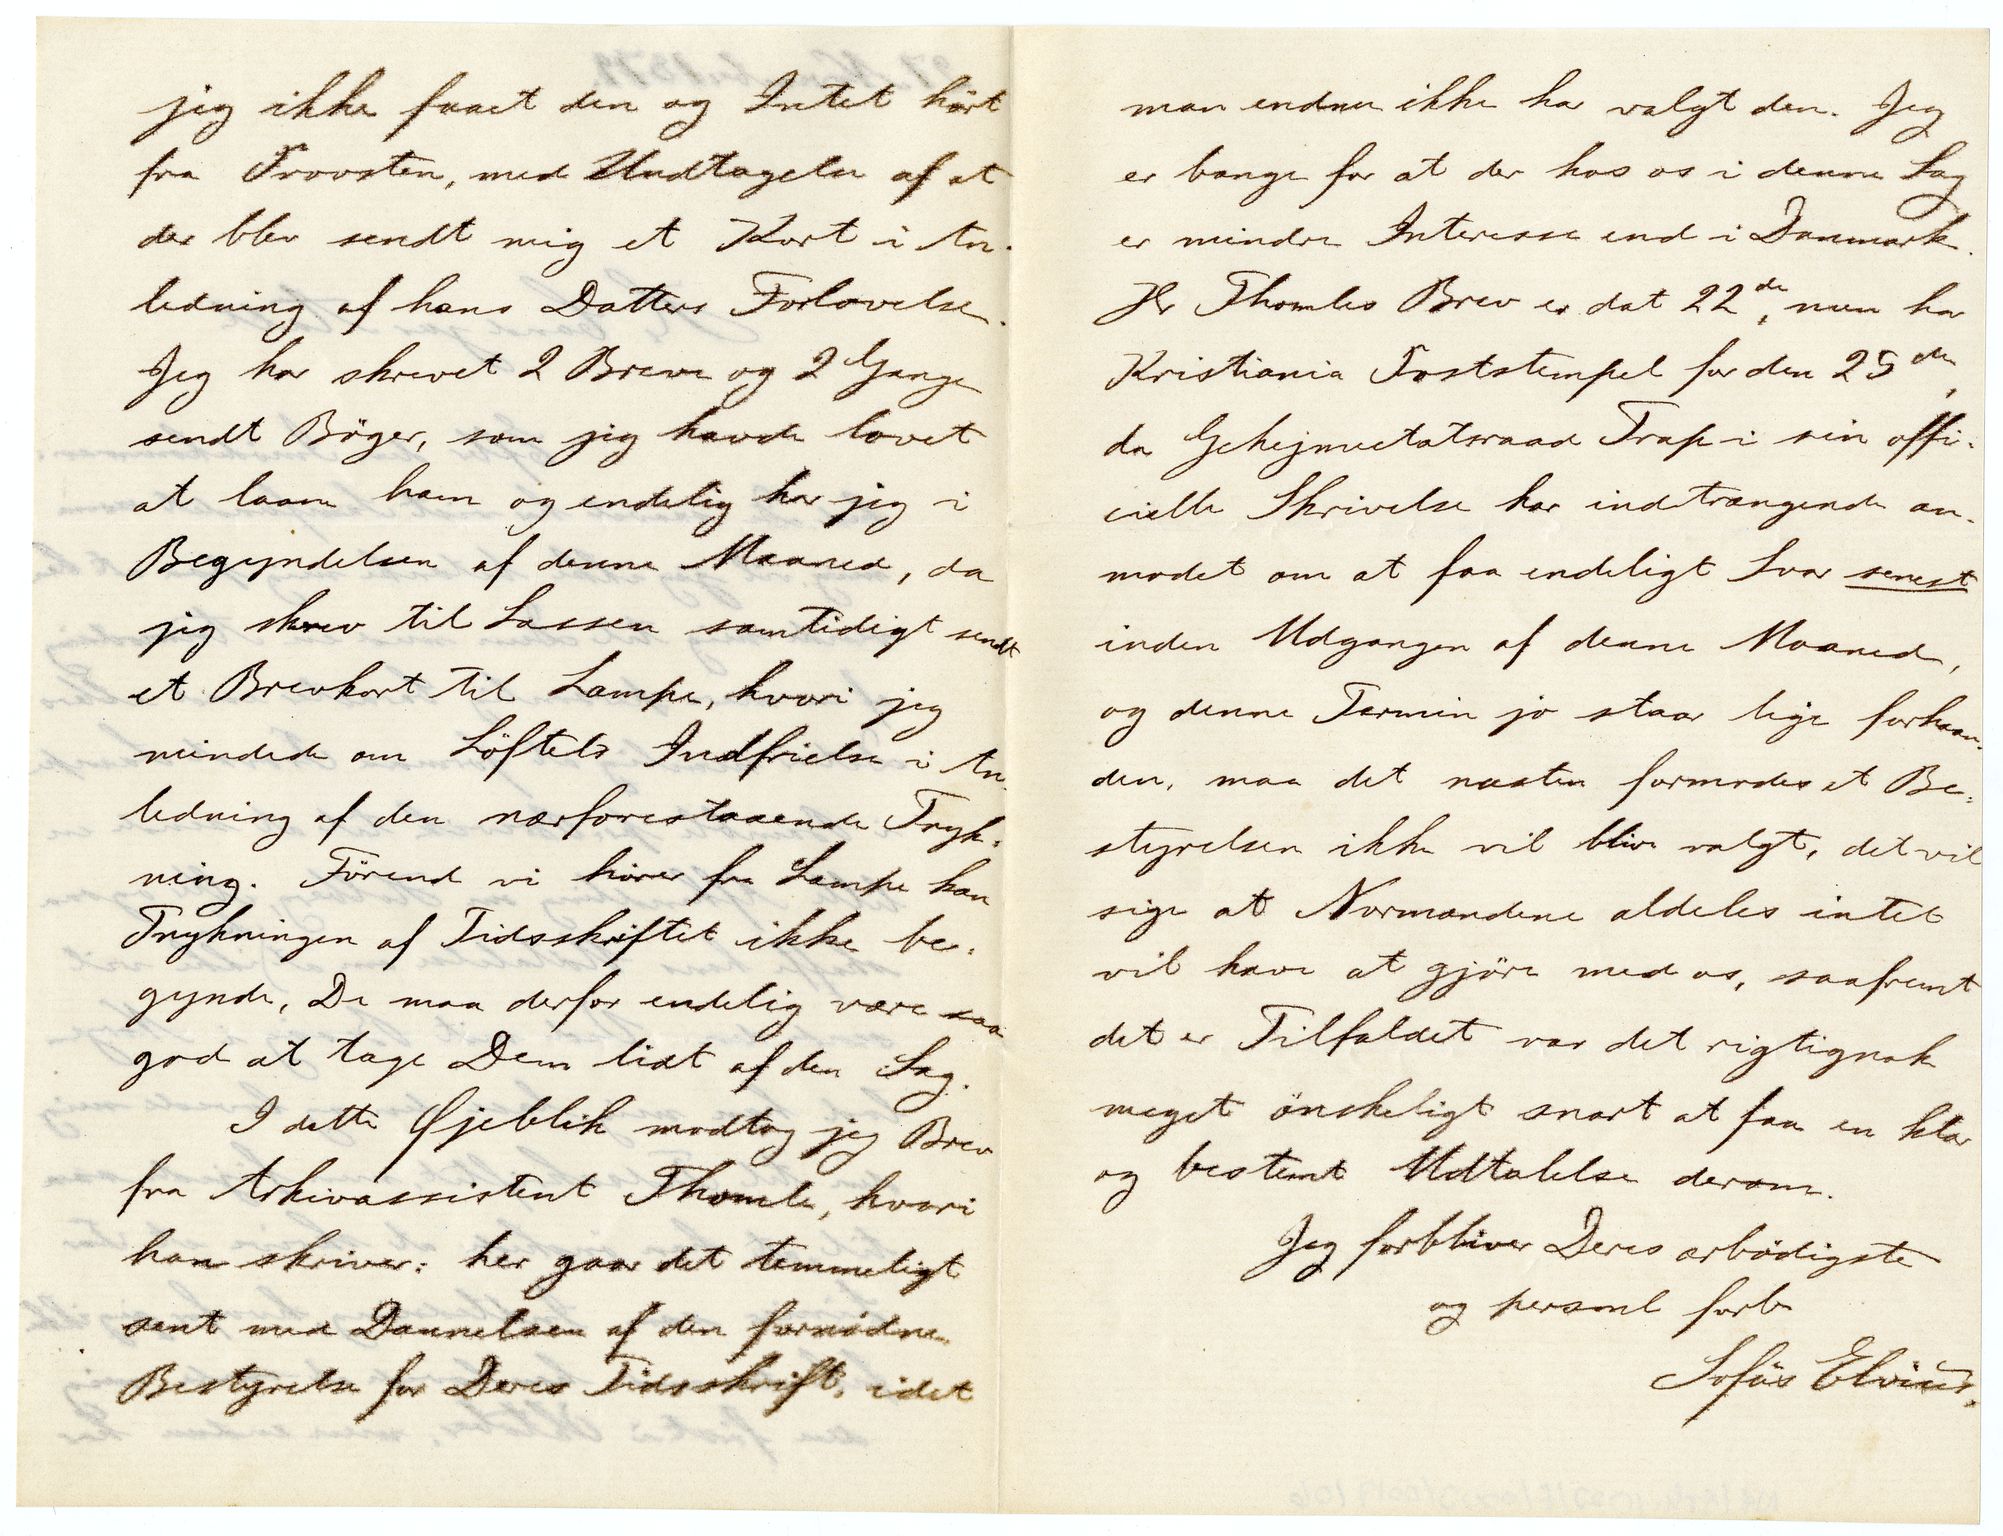 jeg ikke faaet den og Intet hört
fra Provsten, med Undtagelse af at
der blev sendt mig et Kort i An-
ledning af hans Datters Forlovelse.
Jeg har skrevet 2 Breve og 2 Gange
sendt Böger, som jeg havde lovet
at laane ham og endelig har jeg i
Begyndelsen af denne Maaned, da
jeg skrev til Lassen samtidigt sendt
et Brevkort til Lampe, hvori jeg
mindede om Löftets Indfrielse i An-
ledning af den nærforestaaende Tryk-
ning. Förend vi hörer fra Lampe kan
Trykningen af Tidsskriftet ikke be-
gynde, De maa derfor endelig være saa
god at tage Dem lidt af den Sag.
I dette Øjeblik modtog jeg Brev
fra Arkivassistent Thomle, hvori
han skriver: her gaar det temmeligt
sent med Dannelsen af den fornödne
Bestyrelse for Deres Tidsskrift, idet
man endnu ikke har valgt den. Jeg
er bange for at der hos os i denne Sag
er mindre Interesse end i Danmark.
Hr Thomles Brev er dat 22de, men har
Kristiania Poststempel for den 25de,
da Gehejmeetatsraad Trap i sin offi-
cielle Skrivelse har indtrængende an-
modet om at faa endeligt Svar senest
inden Udgangen af denne Maaned,
og denne Termin jo staar lige forhaan-
den, maa det næsten formodes at Be-
styrelsen ikke vil blive valgt, det vil
sige at Normændene aldeles intet
vil have at gjöre med os, saafremt
det er Tilfældet var det rigtignok
meget önskeligt snart at faa en klar
og bestemt Udtalelse derom.
Jeg forbliver Deres ærbödigste
og personl forb
Sofus Elvius.